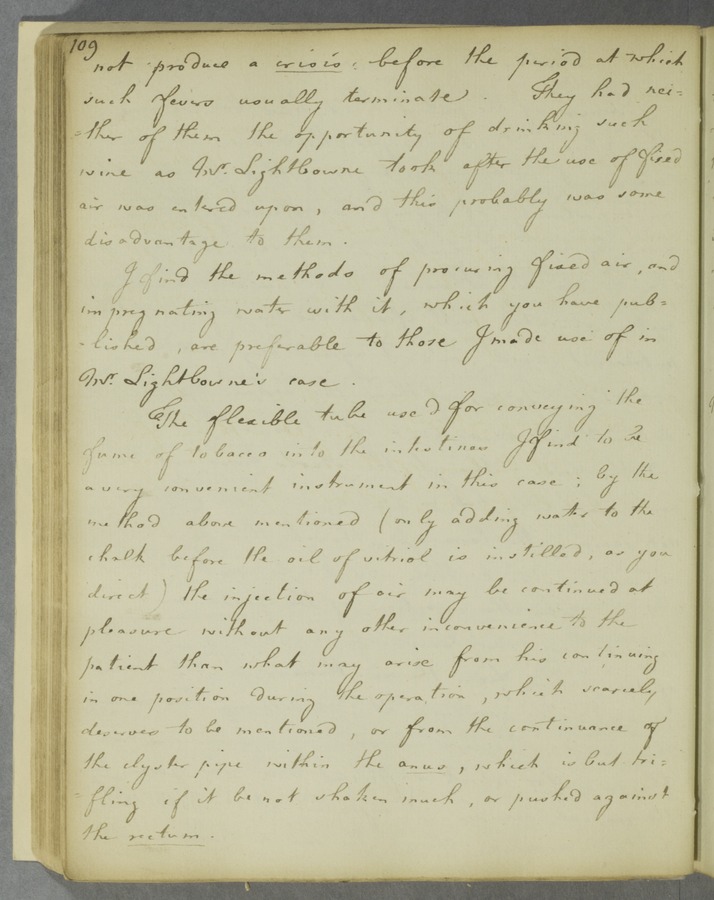 109
not produce a crisis : before the period at which
such fevers usually terminate . They had nei=
=ther of them the opportunity of drinking such
wine as Mr. Lightbowne took after the use of fixed
air was entered upon, and this probably was some
disadvantage to them .
I find the methods of procuring fixed air, and
impregnating water with it, which you have pub=
=lished , are preferable to those I made use of in
Mr. Lightbowne's case .
The flexible tube used for conveying the
fume of tobacco into the intestines I find to be
a very convenient instrument in this case ; by the
method above mentioned (only adding water to the
chalk before the oil of vitriol is instilled, as you
direct) the injection of air may be continued at
pleasure without any other inconvenience to the
patient than what may arise from his continuing
in one position during the operation , which scarcely
deserves to be mentioned , or from the continuance of
the clyster pipe within the anus , which is but tri=
=fling if it be not shaken much , or pushed against
the rectum .